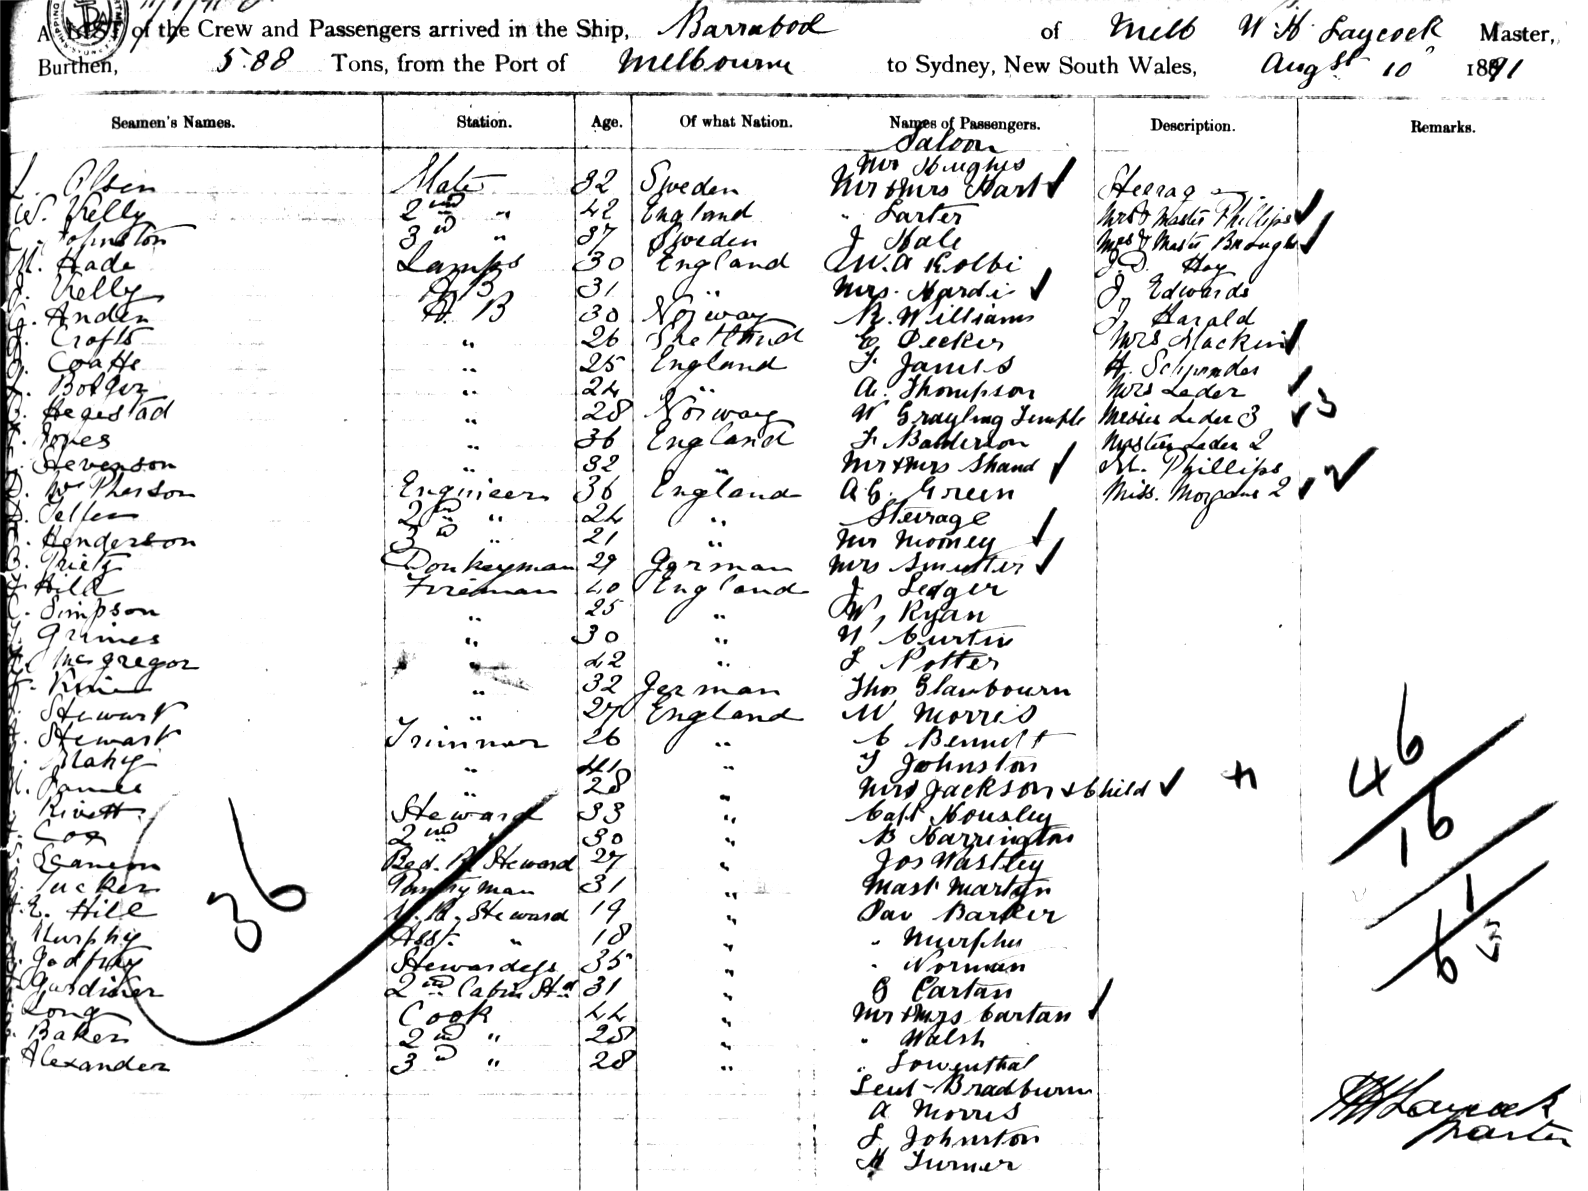 of the Crew and Passengers arrived in the Ship, Barrabool of Melb W H Laycock Master,
Burthen, 588 Tons, from the Port of Melbourne to Sydney, New South Wales, Augst 10 1891
Seamen's Names. Station. Age. Of what Nation. Names of Passengers. Description. Remarks.
Saloon
Mr Hughes
Olsen Mate 32 Sweden Mr & Mrs Hart Steerage
W. Kelly 2nd " 42 England " Larter Mrs & Master Phillips
Johnston 3rd " 37 Sweden J Hale Mrs & Master Brough
M. Hade Lamps 30 England W. A Kolbi J. D. Hoy
J. Kelly A B 31 " Mrs. Hardi J. Edwards
Anden A. B 30 Norway R. Williams J. Harald
J. Crofts " 26 Shetland E Decker Mrs Mackin
Coatts " 25 England F. James H. Schroeder
Bolger " 24 " A. Thompson Mrs Leder
Hegestad " 28 Norway W Grayling Temple Misses Leder 3 3
Jones " 36 England F. Balderson Master Leder 2
Stevenson " 32 " Mr & Mrs Shand M. Phillips
D. McPherson Engineer 36 England A G. Green Miss. Morgans 2 2
2nd " 24 " Steerage
Henderson 3rd " 21 " Mr Mooney
Donkeyman 29 German Mrs
J. Hild Fireman 40 England J. Ledger
Simpson " 25 " W, Ryan
Grimes " 30 " Curtin
McGregor " " 42 " L Potter
" 32 German Thos Glanbourn
Stewart " 27 England W Morris
Stewart Trimmer 26 " C Bennett
" 41 " T Johnston
James " 28 " Mrs Jackson & Child
Rivett Steward 33 " Capt Housley
Cox 2nd " 30 " B Harrington
Bed. R. Steward 27 " Jos Wastley
Tucker Pantryman 31 " Mast Martyn
E. Hill Steward 19 " Dav Barker
Murphy Asst. " 18 " " Murphy
Godfrey Stewardess 35 " " Norman
Gardiner 2nd Cabin Std 31 " Cartan
Long Cook 44 " Mr & Mrs Cartan
Baker 2nd " 28 " " Walsh
Alexander 3rd " 28 " " Lowenthal
Leut Bradburn
A Morris
L Johnston
H Turner
36
46
16
61
63
W H Laycock
Master